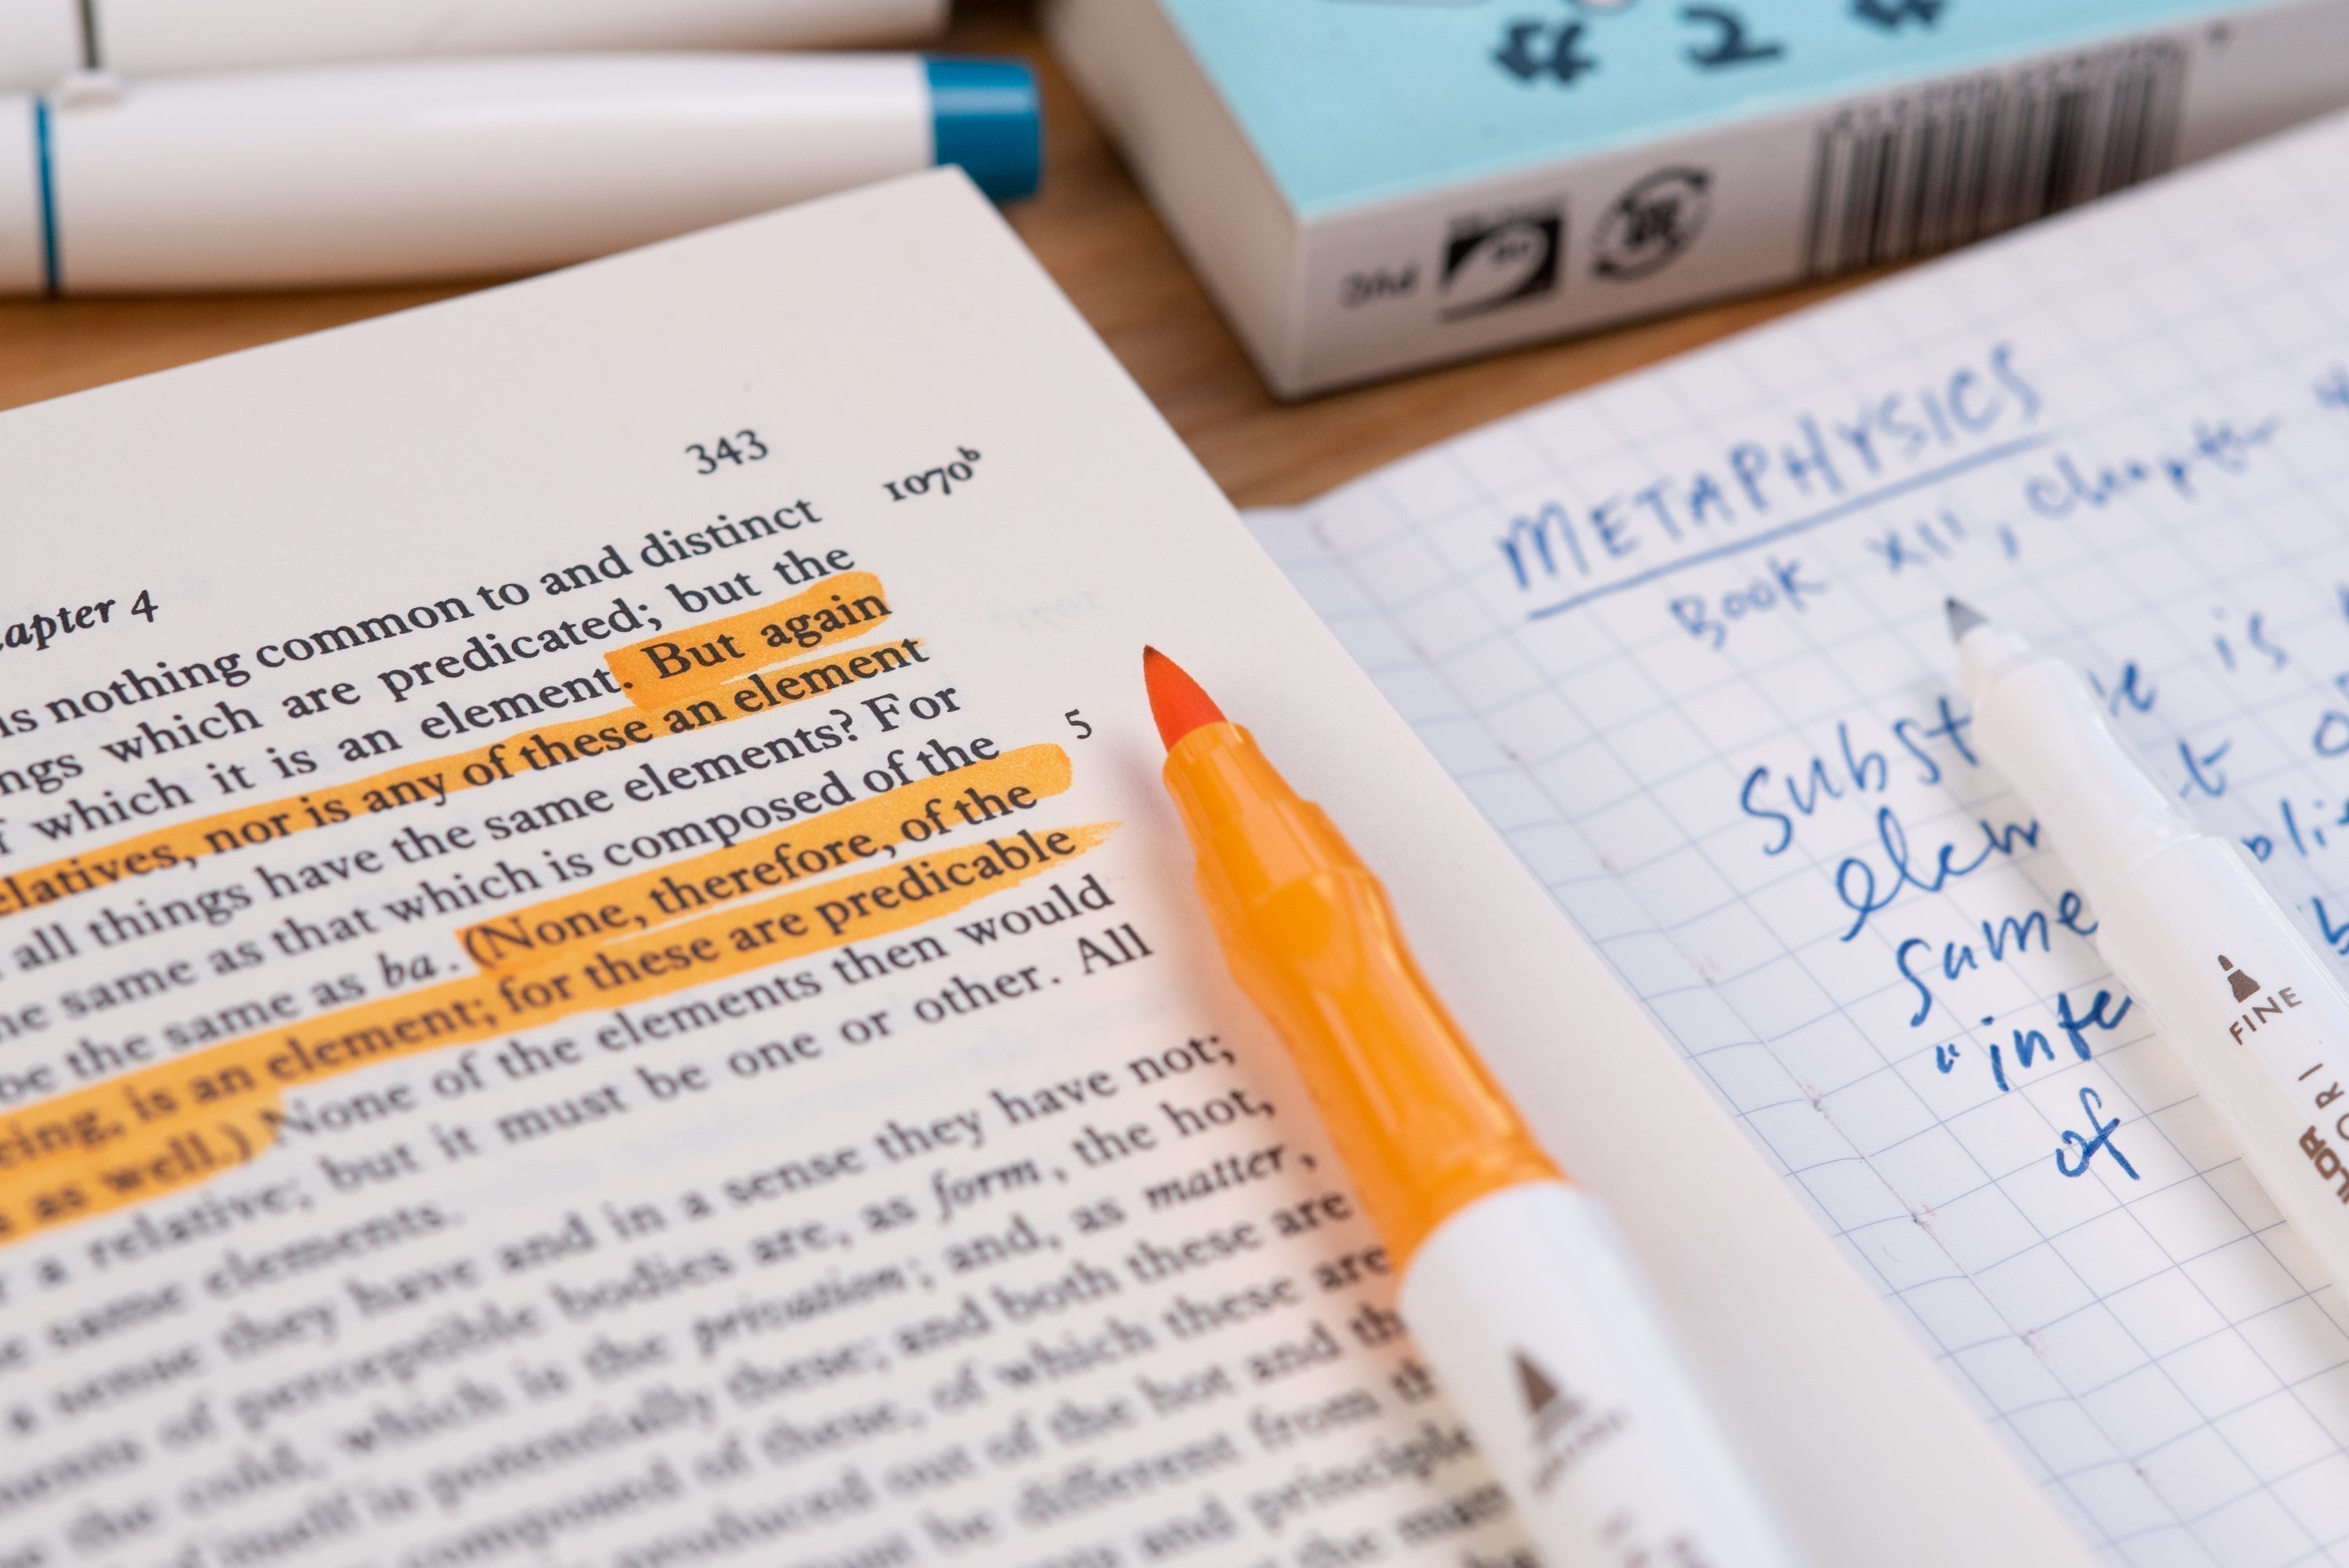 343
apter 4
1070ᵇ
is nothing common to and distinct
ngs which are predicated; but the
f which it is an element. But again
elatives, nor is any of these an element
all things have the same elements? For
ne same as that which is composed of the
5
be the same as ba. (None, therefore, of the
eing, is an element; for these are predicable
s as well.) None of the elements then would
r a relative; but it must be one or other. All
e same elements.
a sense they have and in a sense they have not;
ments of perceptible bodies are, as form, the hot,
the cold, which is the privation; and, as matter,
of itself is potentially these; and both these are
composed of these, of which these are
produced out of the hot and th
must be different from th
and principle
the
PVC
METAPHYSICS
Book XII, chapter 4
Subst e is
elem t
same
"inte
of
FINE